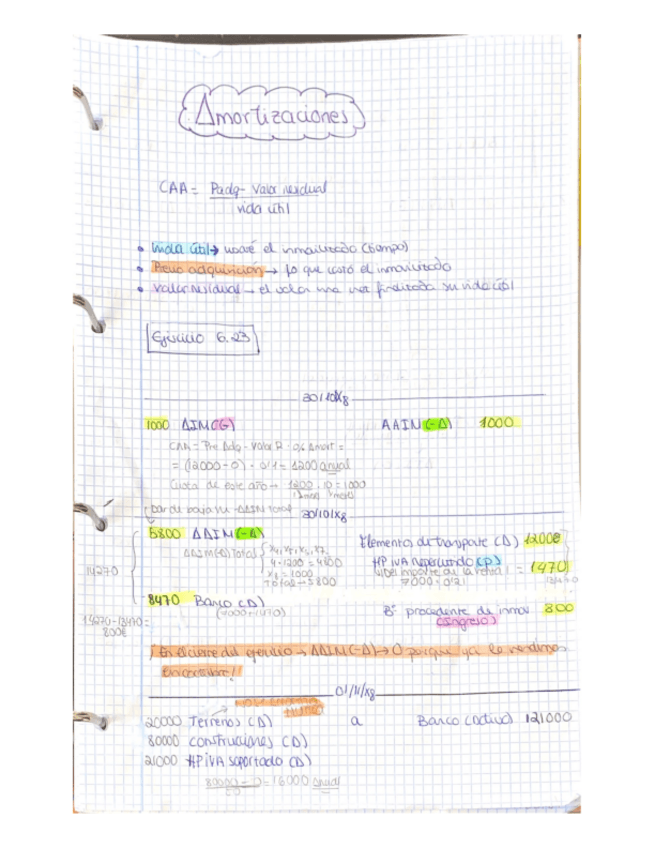 Amortizaciones
CAA = Padq - Valor residual
vida útil
vida útil → el inmovilizado (tiempo)
Precio adquisición → lo que costó el inmovilizado
Valor residual → el valor una vez finalizada su vida útil
Ejercicio 6.23
30/10/X8
1000 AIM(G) a AAIM(-A) 1000
CAA = Pre Adq - Valor R · % Amort =
= (12000-0) · 0'1 = 1200 anual
Cuota de este año → 1200 · 10 = 1000
Dar de baja
30/10/X8
5800 AAIM(-A) Elementos de transporte (A) 12000
AAIM(-A) Total X4, X5, X6, X7
4·1200 = 4800
X8 = 1000
Total → 5800
HP IVA repercutido (P) 1470
7000 · 0'21
14270
8470 Banco (A)
(7000+1470)
Bº procedente de inmov 800
(Ingreso)
14270-13470=
800€
En el cierre del ejercicio → AAIM(-A) → 0 porque ya lo vendimos
01/11/X8
20000 Terrenos (A) a Banco (activo) 121000
80000 Construcciones (A)
21000 HP IVA soportado (A)
80000 - 0 = 16000 anual